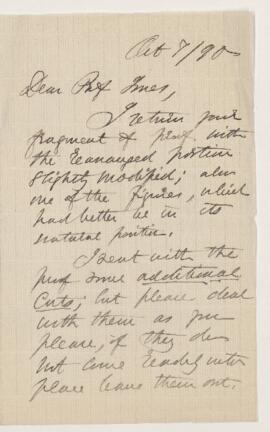 Oct 7/90
Dear Prof Jones,
I return your
fragment of proof with
the rearranged portion
slightly modified; also
one of the figures, which
had better be in its
natural position.
I sent with the
proof some additional
cuts, but please deal
with them as you
please, if they do
not come readily into
place leave them out.